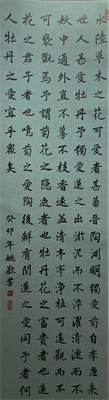 水陸草木之花可愛者甚蕃晉陶淵明獨愛菊自李唐來
世人甚愛牡丹予獨愛蓮之出淤泥而不染濯清漣而不
妖中通外直不蔓不枝香遠益清亭亭淨植可遠觀而不
可褻翫焉予謂菊花之隱逸者也牡丹花之富貴者也蓮
花之君子者也噫菊之愛陶後鮮有聞蓮之愛同予者何
人牡丹之愛宜乎衆矣
癸卯年姚歡書